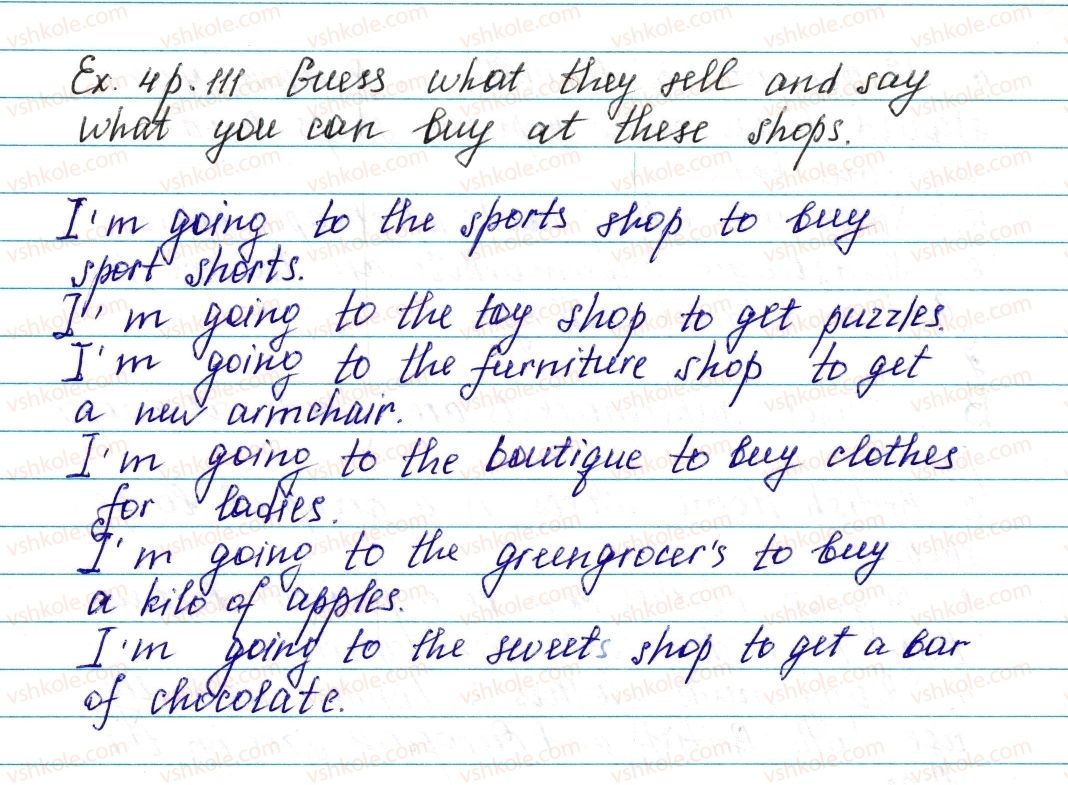 Ex. 4 p. 111. Guess what they sell and say
what you can buy at these shops.
I'm going to the sports shop to buy
sport shorts.
I'm going to the toy shop to get puzzles.
I'm going to the furniture shop to get
a new armchair.
I'm going to the boutique to buy clothes
for ladies.
I'm going to the greengrocer's to buy
a kilo of apples.
I'm going to the sweets shop to get a bar
of chocolate.